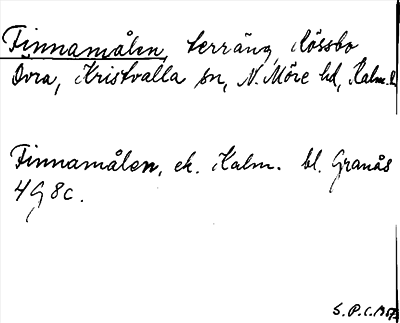 Finnamålen, terräng, Rössbo
Övra, Kristvalla sn, N. Möre hd, Kalm. l.
Finnamålen, ek. Kalm. bl. Granås
4G 8c.
S.P.C.